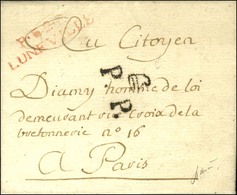 LUNEVILLE
Au Citoyen
P.P.
Diamy homme de loi
demeurant rue Croix de la
bretonnerie n° 16
A Paris